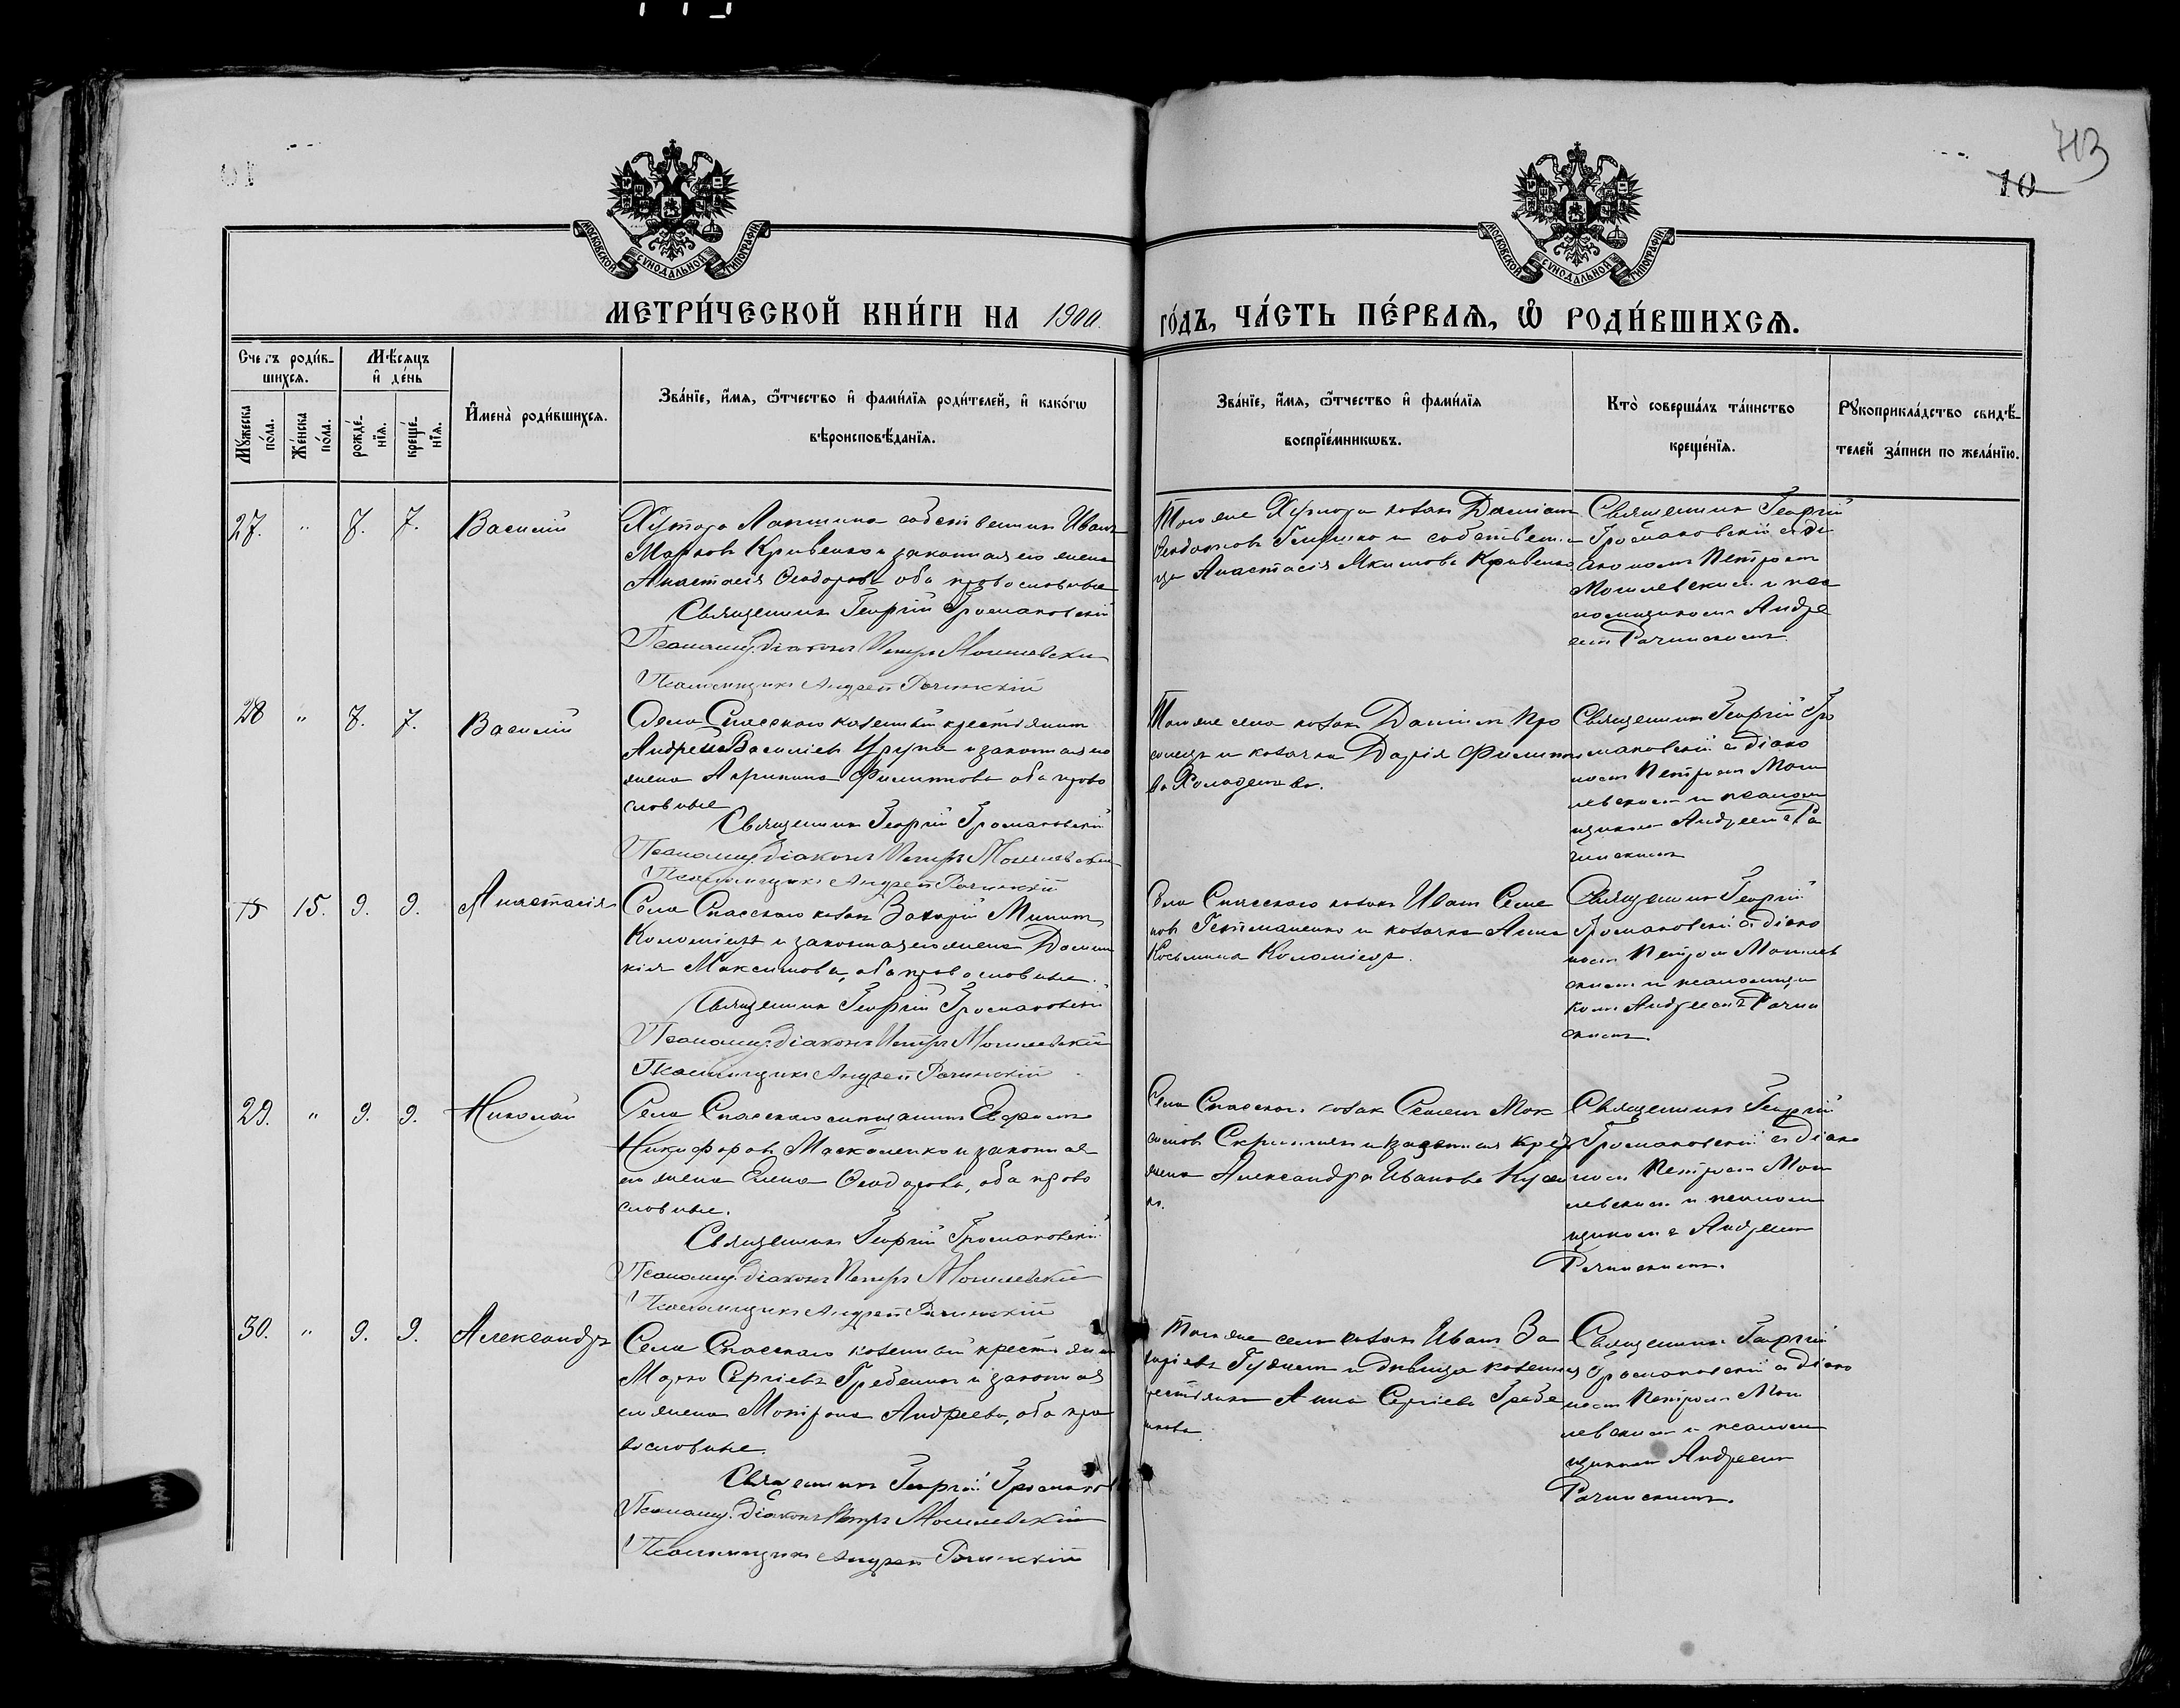 713
10
МОСКОВСКОЙ СѴНОДАЛЬНОЙ ТИПОГРАФИИ
МОСКОВСКОЙ СѴНОДАЛЬНОЙ ТИПОГРАФИИ
МЕТРИ́ЧЕСКОЙ КНИ́ГИ НА 1900. го́дъ, ЧА́СТЬ ПЕ́РВАѦ, Ѽ РОДИ́ВШИХСѦ.
Счетъ роди́в-
шихсѧ.
Мꙋжеска
по́ла.
Же́нска
по́ла.
Мѣсѧцъ
и҆ де́нь
рожде́-
нїѧ.
креще́-
нїѧ.
И҆мена̀ роди́вшихсѧ.
Зва́нїе, и҆́мѧ, ѻ҆́тчество и҆ фами́лїѧ роди́телей, и҆ како́гѡ
вѣроисповѣ́данїѧ.
Зва́нїе, и҆́мѧ, ѻ҆́тчество и҆ фами́лїѧ
воспрїе́мникѡвъ.
Кто̀ соверша́лъ та́инство
креще́нїѧ.
Рꙋкоприкла́дство свидѣ́-
телей за́писи по жела́нїю.
27. " 8. 7. Василій
Хутора Лапшина собственник Иванъ
Марковъ Кривенко и законная его жена
Анастасія Ѳеодорова оба православные
Священник Георгій Громаковскій
Псаломщ. діаконъ Петръ Могилевскій
Псаломщикъ Андрей Рачинскій
Того же Хутора козак Даміан
и собствен
ца Анастасія Якимова Кривенко
Священник Георгій
Громаковскій с ді
аконом Петром
Могилевским и пса
ломщиком Андре
ем Рачинским
28 " 8. 7. Василій
Села Спасского казенный крестьянин
Андрей Васильев Цупа и законная его
жена Акрипина Филиппова оба право
славные
Священник Георгій Громаковскій
Псаломщ. діаконъ Петръ Могилевскій
Псаломщикъ Андрей Рачинскій
Того же села козак Даміан Про
и козачка Дарія Филиппо
ва
Священник Георгій Гро
маковскій с діако
ном Петром Моги
левским и псалом
щиком Андреем Ра
чинским
15. 9. 9. Анастасія
Села Спасского козак Захарій Минин
Коломіецъ и законная его жена Домни
кія Максимова, оба православные.
Священник Георгій Громаковскій
Псаломщ. діаконъ Петръ Могилевскій
Псаломщикъ Андрей Рачинскій
Села Спасского козак Иван Семе
нов Гетманенко и козачка Анна
Козьмина Коломіецъ.
Священник Георгій
Громаковскій с діако
ном Петром Могилев
ским и псаломщи
ком Андреем Рачин
ским.
29. " 9. 9. Николай
Села Спасского мещанин Ефрем
Никифоров Москаленко и законная
его жена Елена Ѳеодорова, оба право
славные.
Священник Георгій Громаковскій
Псаломщ. діаконъ Петръ Могилевскій
Псаломщикъ Андрей Рачинскій
Села Спасского козак Семен Мак
симов
Александра Иванова
Священник Георгій
Громаковскій с діако
ном Петром Моги
левским и псалом
щиком Андреем
Рачинским.
30. " 9. 9. Александръ
Села Спасского казенный крестьянин
Марко Сергіевъ Гребенник и законная
его жена Матрона Андреева, оба пра
вославные.
Священник Георгій Громаков
Псаломщ. діаконъ Петръ Могилевскій
Псаломщикъ Андрей Рачинскій
Того же села козак Иван За
харіевъ и девица казенная
крестьянка Анна Сергіева Гребе
никова
Священник Георгій
Громаковскій с діако
ном Петром Моги
левским и псалом
щиком Андреем
Рачинским.